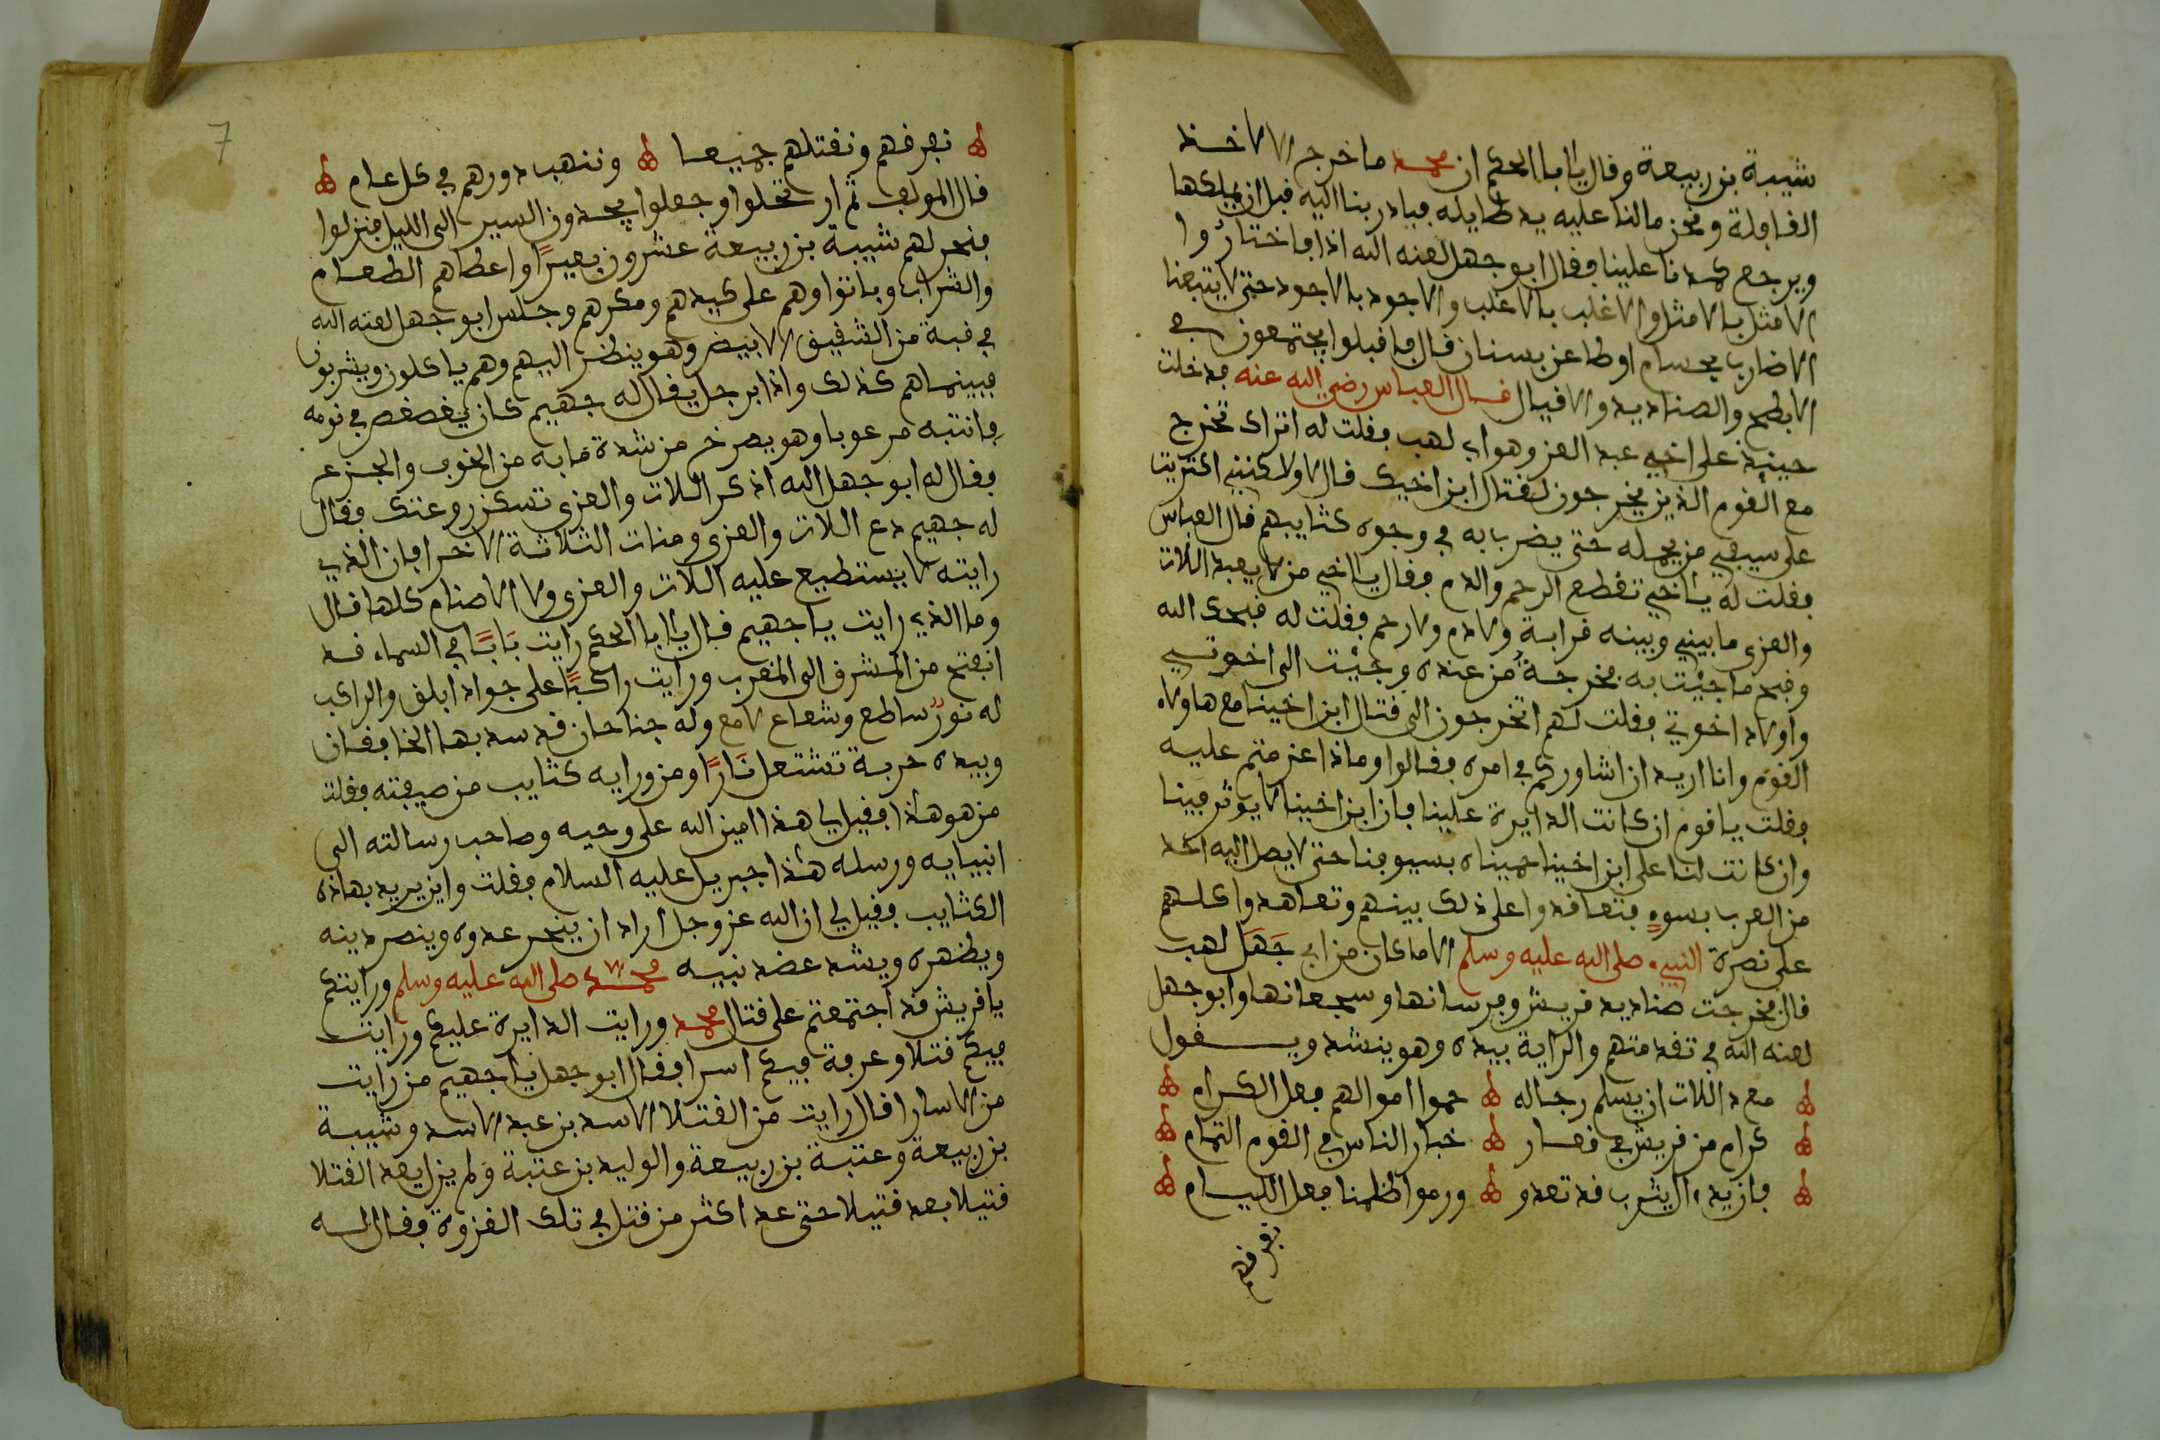 شيبة بن ربيعة وقال يا ابا الحكم ان محمد ما خرج الا لاخذ
القافلة ونحن ما لنا عليه يد طايلة فبادر بنا اليه قبل ان يملكها
ويرجع كيدنا علينا فقال ابو جهل لعنه الله اذا فاختاروا
الامثل بالامثل والاغلب بالاغلب والاجود بالاجود حتى لا يتبعنا
الا ضارب بحسام او طاعن بسنان قال فاقبلوا يجتمعون في
الابطح والصناديد والاقيال قال العباس رضي الله عنه فدخلت
حينيذ على اخي عبد العز وهو ابي لهب فقلت له اتراك تخرج
مع القوم الذين يخرجون لقتال ابن اخيك قال لا ولاكنني اكتريت
على سيفي من يحمله حتى يضرب به في وجوه كتايبهم قال العباس
فقلت له يا اخي تقطع الرحم والدم فقال يا اخي من لا يعبد اللات
والعزى ما بيني وبينه قرابة ولا دم ولا رحم فقلت له قبحك الله
وقبح ما جيت به فخرجت من عنده وجيت الى اخوتي
واولاد اخوتي فقلت لهم اتخرجون الى قتال ابن اخينا مع هاولاء
القوم وانا اريد ان اشاوركم في امره فقالوا وماذا عزمتم عليه
فقلت يا قوم ان كانت الدايرة علينا فان ابن اخينا لا يوثر فينا
وان كانت لنا على ابن اخينا حميناه بسيوفنا حتى لا يصل اليه احد
من العرب بسوء فتعاقدوا على ذلك بينهم وتعاهدوا كلهم
على نصرة النبيء صلى الله عليه وسلم الا ما كان من ابي جهل لهب
قال فخرجت صناديد قريش وفرسانها وشجعانها وابو جهل
لعنه الله في تقدمتهم والراية بيده وهو ينشد ويقول
معد اللات ان يسلم رجاله حموا اموالهم فعل الكرام
كرام من قريش في فعار خيار الناس في القوم التمام
فان يد ال يثرب قد تعدو ورموا ظلمنا فعل الليام
نعرفهم
7
نعرفهم ونقتلهم جميعا وننهب دورهم في كل عام
قال المولف ثم ارتحلوا وجعلوا يجدون السير الى الليل فنزلوا
فنحر لهم شيبة بن ربيعة عشرون بعيرا واعطاهم الطعام
والشراب وباتوا وهم على كيدهم ومكرهم وجلس ابو جهل لعنه الله
في قبة من الشقيق الابيض وهو ينظر اليهم وهم ياكلون ويشربون
فبينما هم كذلك واذا برجل يقال له جهيم كان يغصغص في نومه
وانتبه مرعوبا وهو يصرخ من شدة ما به من الخوف والجزع
فقال له ابو جهل الله اذكر اللات والعزى تسكن روعتك فقال
له جهيم دع اللات والعزى ومنات الثلاثة الاخرا فان الذي
رايته لا يستطيع عليه اللات والعزى ولا الاصنام كلها قال
وما الذي رايت يا جهيم قال يا ابا الحكم رايت بابا في السماء قد
انفتح من المشرق الى المغرب ورايت راكبا على جواد ابلق والراكب
له نور ساطع وشعاع لامع وله جناحان قد سد بها الخافقان
وبيده حربة تشتعل نارا ومن ورايه كتايب من صيفته فقلت
من هو هذا فقيل لي هذا امين الله على وحيه وصاحب رسالته الى
انبيايه ورسله هذا جبريل عليه السلام فقلت واين يريد بهاذه
الكتايب فقيل لي ان الله عز وجل اراد ان ينحر عدوه وينصر دينه
ويظهره ويشد عضد نبييه محمد صلى الله عليه وسلم ورايتكم
يا قريش قد اجتمعتم على قتال محمد ورايت الدايرة عليكم ورايت
فيكم قتلا وعرفة فيكم اسرا فقال ابو جهل يا جهيم من رايت
من الاسارا قال رايت من القتلا الاسد بن عبد الاسد وشيبة
بن ربيعة وعتبة بن ربيعة والوليد بن عتبة ولم يزل يعد القتلا
قتيلا بعد قتيلا حتى عد اكثر من قتل في تلك الغزوة فقال له